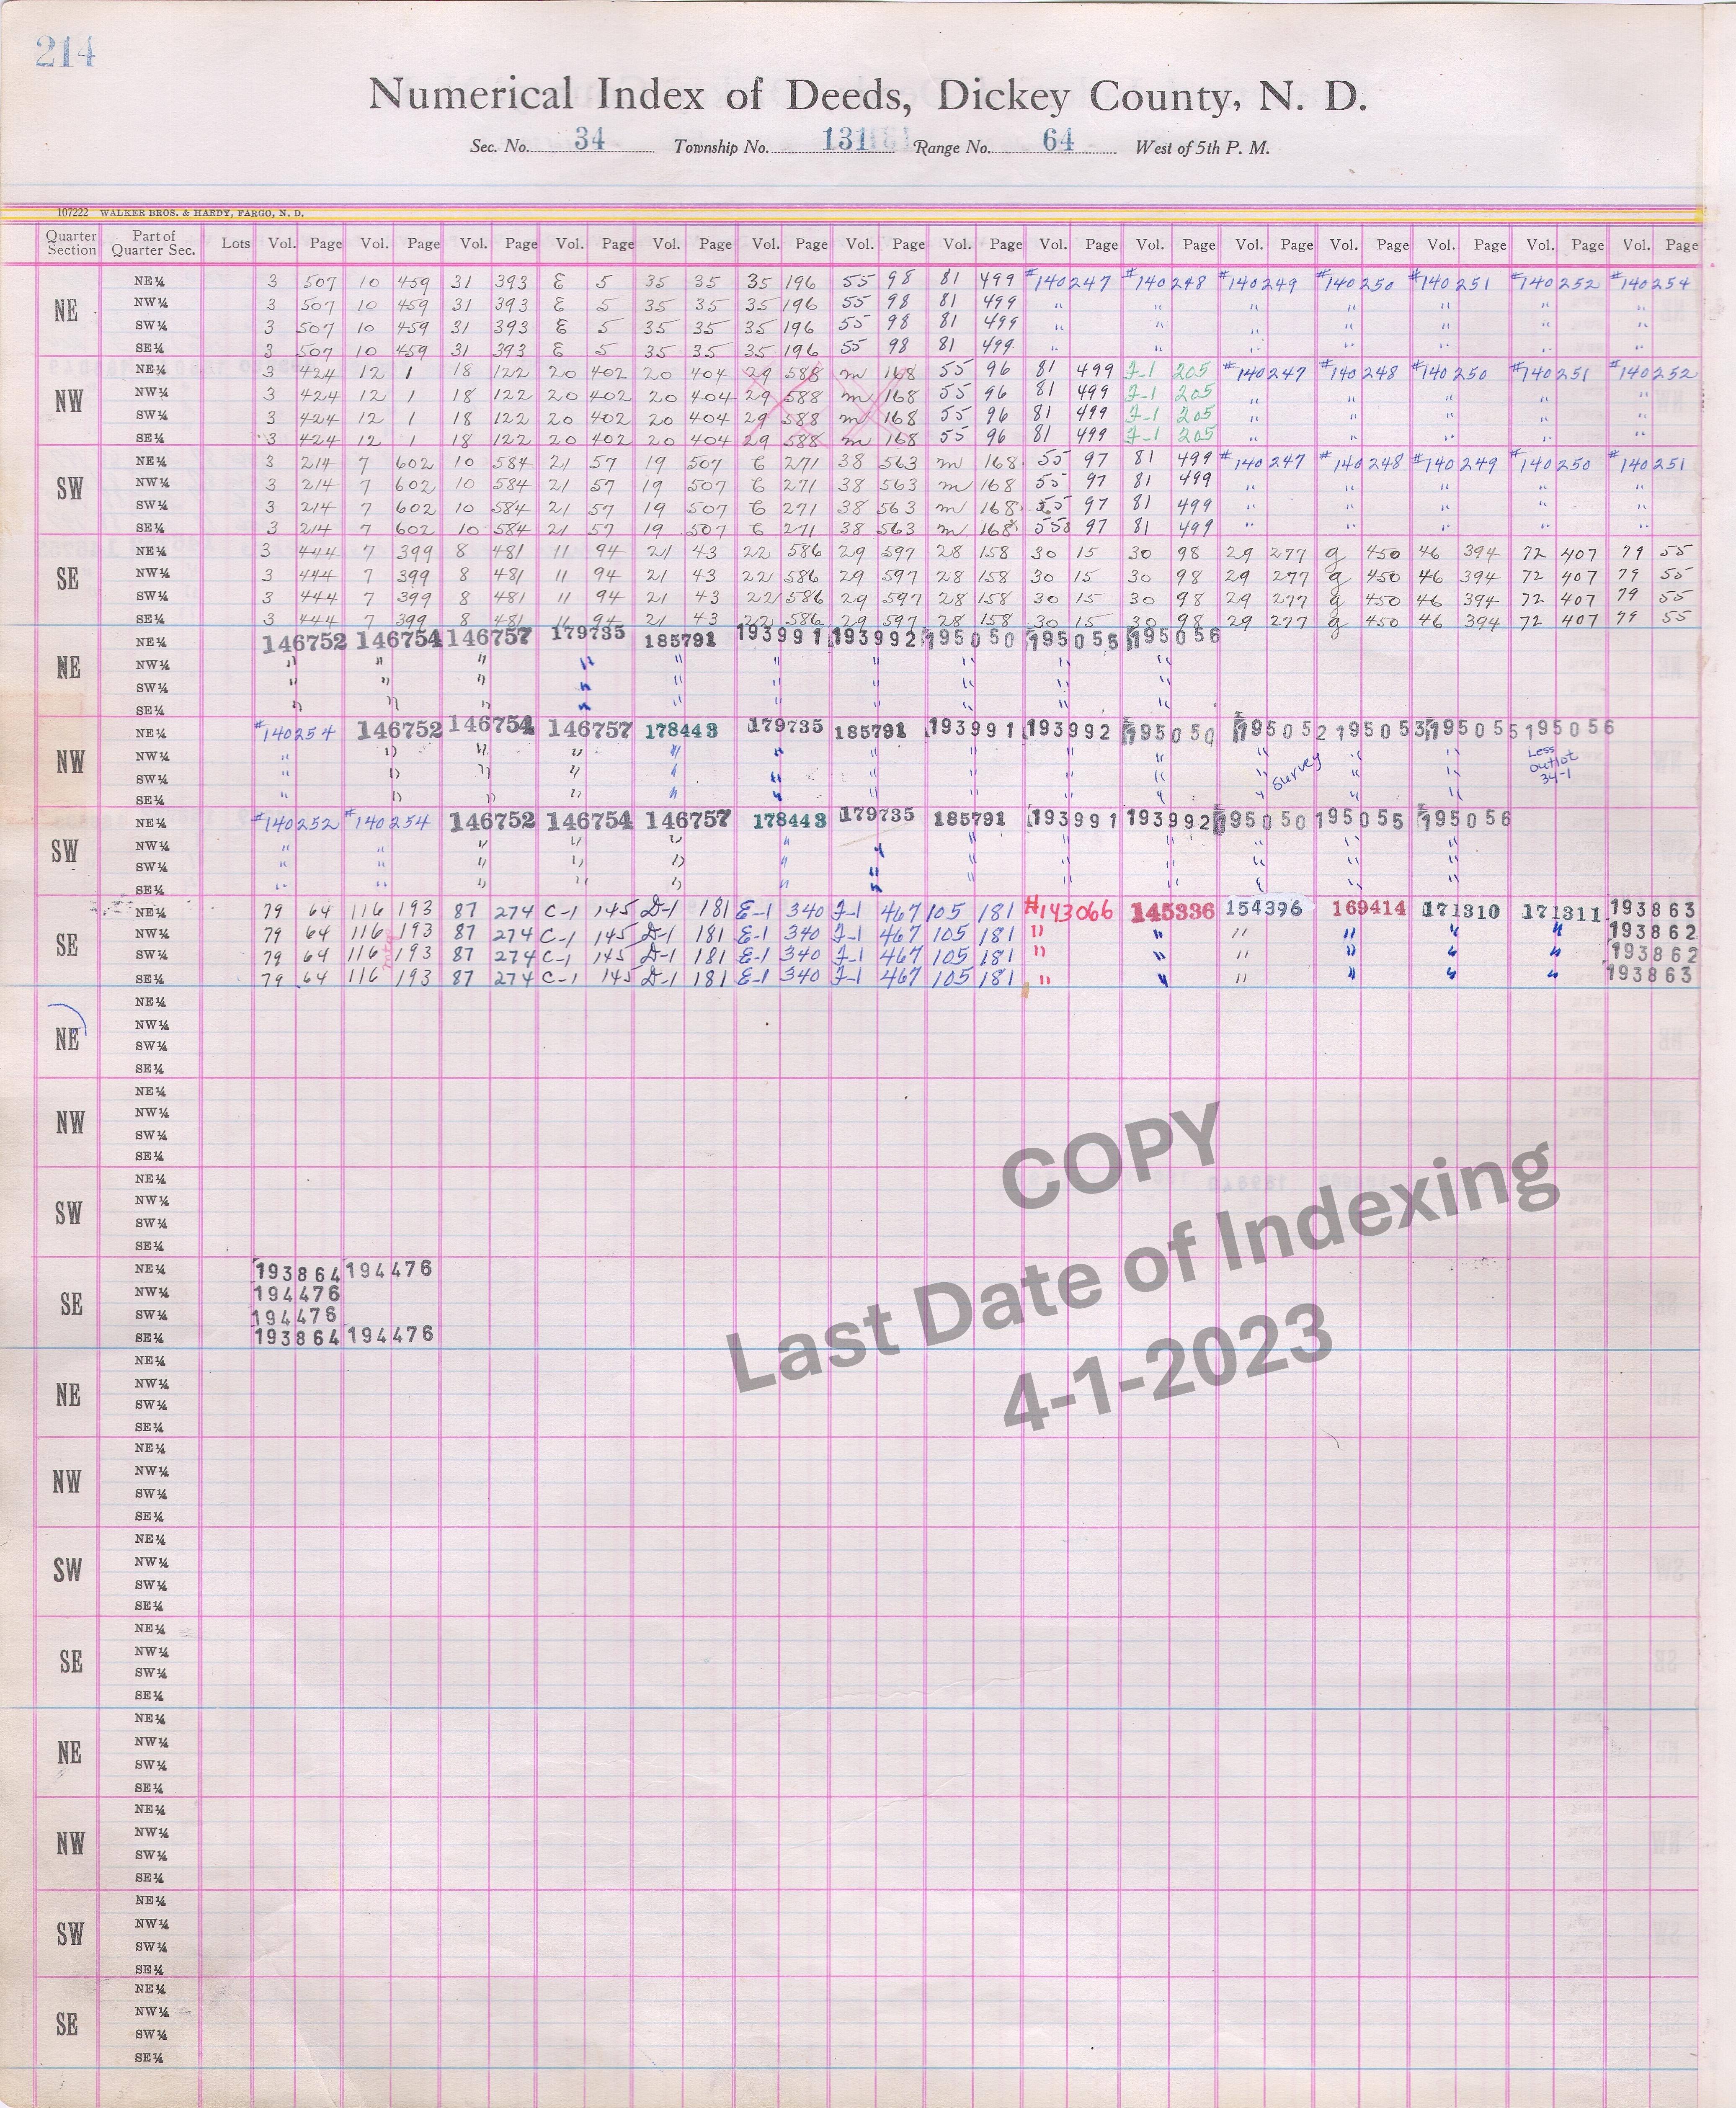 214
Numerical Index of Deeds, Dickey County, N. D.
Sec. No. 34 Township No. 131 Range No. 64 West of 5th P. M.
107222 WALKER BROS. & HARDY, FARGO, N. D.
Quarter Section Part of Quarter Sec. Lots Vol. Page Vol. Page Vol. Page Vol. Page Vol. Page Vol. Page Vol. Page Vol. Page Vol. Page Vol. Page Vol. Page Vol. Page Vol. Page Vol. Page Vol. Page
NE
NE¼ 3 507 10 459 31 393 E 5 35 35 35 196 55 98 81 499 #140247 #140248 #140249 #140250 #140251 #140252 #140254
NW¼ 3 507 10 459 31 393 E 5 35 35 35 196 55 98 81 499 " " " " " " "
SW¼ 3 507 10 459 31 393 E 5 35 35 35 196 55 98 81 499 " " " " " " "
SE¼ 3 507 10 459 31 393 E 5 35 35 35 196 55 98 81 499 " " " " " " "
NW
NE¼ 3 424 12 1 18 122 20 402 20 404 29 588 m 168 55 96 81 499 J-1 205 #140247 #140248 #140250 #140251 #140252
NW¼ 3 424 12 1 18 122 20 402 20 404 29 588 m 168 55 96 81 499 J-1 205 " " " " "
SW¼ 3 424 12 1 18 122 20 402 20 404 29 588 m 168 55 96 81 499 J-1 205 " " " " "
SE¼ 3 424 12 1 18 122 20 402 20 404 29 588 m 168 55 96 81 499 J-1 205 " " " " "
SW
NE¼ 3 214 7 602 10 584 21 57 19 507 C 271 38 563 m 168 55 97 81 499 #140247 #140248 #140249 #140250 #140251
NW¼ 3 214 7 602 10 584 21 57 19 507 C 271 38 563 m 168 55 97 81 499 " " " " "
SW¼ 3 214 7 602 10 584 21 57 19 507 C 271 38 563 m 168 55 97 81 499 " " " " "
SE¼ 3 214 7 602 10 584 21 57 19 507 C 271 38 563 m 168 55 97 81 499 " " " " "
SE
NE¼ 3 444 7 399 8 481 11 94 21 43 22 586 29 597 28 158 30 15 30 98 29 277 g 450 46 394 72 407 79 55
NW¼ 3 444 7 399 8 481 11 94 21 43 22 586 29 597 28 158 30 15 30 98 29 277 g 450 46 394 72 407 79 55
SW¼ 3 444 7 399 8 481 11 94 21 43 22 586 29 597 28 158 30 15 30 98 29 277 g 450 46 394 72 407 79 55
SE¼ 3 444 7 399 8 481 11 94 21 43 22 586 29 597 28 158 30 15 30 98 29 277 g 450 46 394 72 407 79 55
NE
NE¼ 146752 146754 146757 179735 185791 193991 193992 195050 195055 195056
NW¼ " " " " " " " " " "
SW¼ " " " " " " " " " "
SE¼ " " " " " " " " " "
NW
NE¼ #140254 146752 146754 146757 178443 179735 185791 193991 193992 195050 195052 195053 195055 195056
NW¼ " " " " " " " " " " " " " Less
SW¼ " " " " " " " " " " " Survey " " outlot
SE¼ " " " " " " " " " " " " " 34-1
SW
NE¼ #140252 #140254 146752 146754 146757 178443 179735 185791 193991 193992 195050 195055 195056
NW¼ " " " " " " " " " " " " "
SW¼ " " " " " " " " " " " " "
SE¼ " " " " " " " " " " " " "
SE
NE¼ 79 64 116 193 87 274 C-1 145 D-1 181 E-1 340 J-1 467 105 181 #143066 145336 154396 169414 171310 171311 193863
NW¼ 79 64 116 193 87 274 C-1 145 D-1 181 E-1 340 J-1 467 105 181 " " " " " " 193862
SW¼ 79 64 116 193 87 274 C-1 145 D-1 181 E-1 340 J-1 467 105 181 " " " " " " 193862
SE¼ 79 64 116 193 87 274 C-1 145 D-1 181 E-1 340 J-1 467 105 181 " " " " " " 193863
NE
NE¼
NW¼
SW¼
SE¼
NW
NE¼
NW¼
SW¼
SE¼
SW
NE¼
NW¼
SW¼
SE¼
SE
NE¼ 193864 194476
NW¼ 194476
SW¼ 194476
SE¼ 193864 194476
NE
NE¼
NW¼
SW¼
SE¼
NW
NE¼
NW¼
SW¼
SE¼
SW
NE¼
NW¼
SW¼
SE¼
SE
NE¼
NW¼
SW¼
SE¼
NE
NE¼
NW¼
SW¼
SE¼
NW
NE¼
NW¼
SW¼
SE¼
SW
NE¼
NW¼
SW¼
SE¼
SE
NE¼
NW¼
SW¼
SE¼
COPY
Last Date of Indexing
4-1-2023